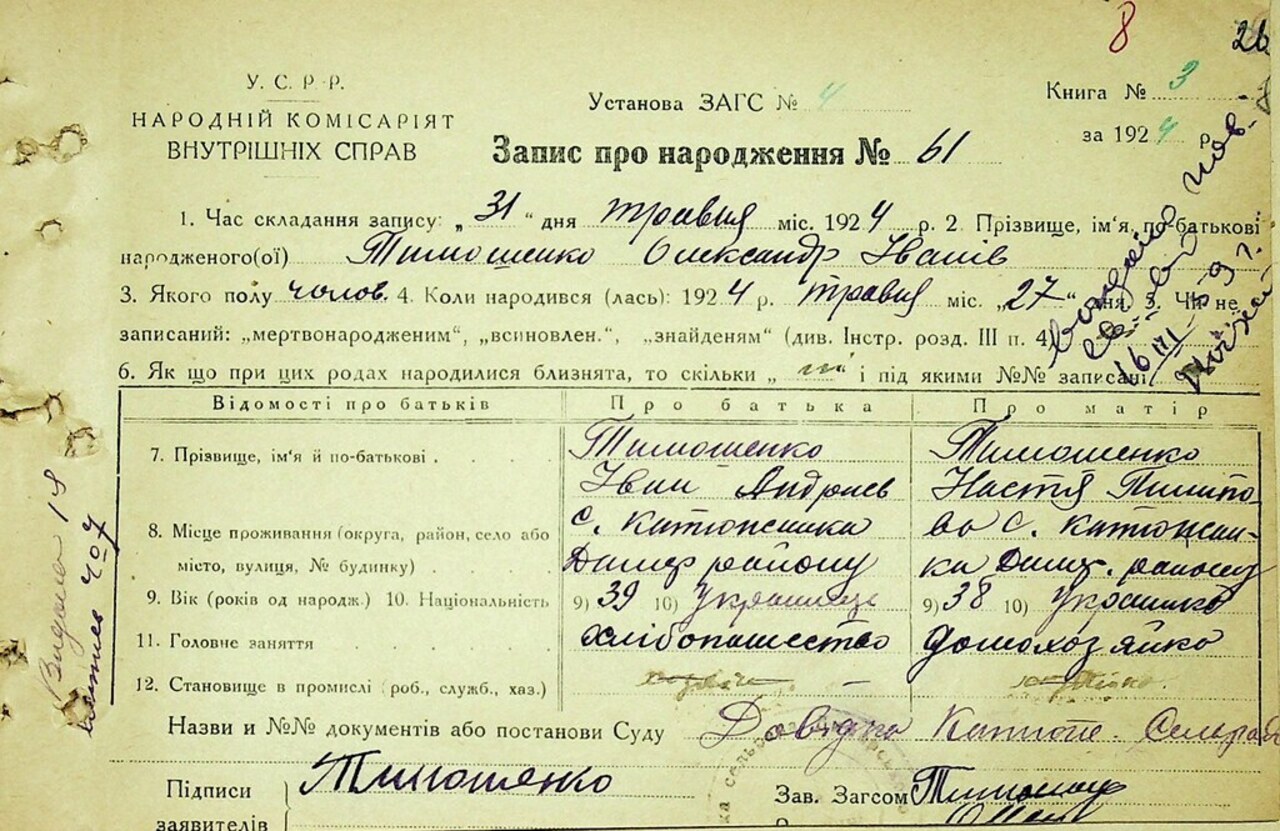 8
26
У. С. Р Р.
НАРОДНІЙ КОМІСАРІЯТ
ВНУТРІШНІХ СПРАВ
Установа ЗАГС № 4
Книга № 3
за 1924 р.
Запис про народження № 61
1. Час складання запису: „31" дня травня міс. 1924 р. 2. Прізвище, ім'я, по-батькові
народженого(ої) Тимошенко Олександр Іванів
3. Якого полу чолов. 4. Коли народився (лась): 1924 р. травня міс. „27" дня. 5. Чи не
записаний: „мертвонародженим", „всиновлен.", „знайденям" (див. Інстр. розд. III п. 4)
6. Як що при цих родах народилися близнята, то скільки „ " і під якими №№ записані
16 VII
Відомості про батьків Про батька Про матір
7. Прізвище, ім'я й по-батькові Тимошенко Тимошенко
Іван Андрієв Настя
8. Місце проживання (округа, район, село або с. Катюжанка с. Катюжан-
місто, вулиця, № будинку) Димер району ки Димр. району
9. Вік (років од народж.) 10. Національність 9) 39 10) Украинець 9) 38 10) Украинка
11. Головне заняття хлібопашество домохозяйка
12. Становище в промислі (роб., служб., хаз.) –
Назви и №№ документів або постанови Суду Довідка Катюж. Сельрад
Підписи Тимошенко Зав. Загсом
заявителів